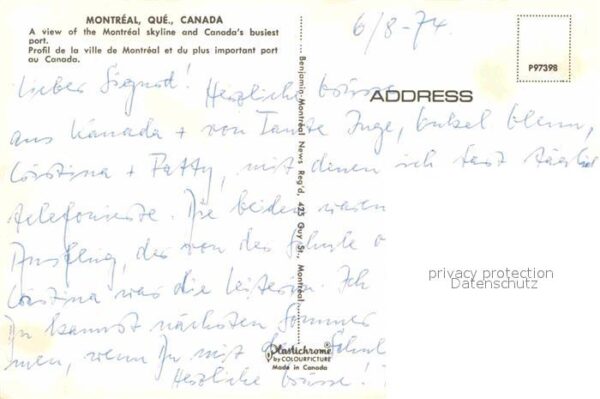 MONTRÉAL, QUÉ., CANADA
A view of the Montréal skyline and Canada's busiest
port.
Profil de la ville de Montréal et du plus important port
au Canada.
6/8-74.
P97398
ADDRESS
Lieber Sigurd! Herzliche Grüsse
aus Kanada + von Tante Inge, Onkel Glenn,
Cristina + Patty, mit denen ich fast täglich
telefonierte. Die beiden waren
Ausflug, der von der Schule
Cristina war die Leiterin. Ich
Du kannst nächsten Sommer
men, wenn Du mit der Schul
Herzliche Grüsse!
Benjamin Montréal News Reg'd, 425 Guy St., Montréal
privacy protection
Datenschutz
Plastichrome®
by COLOURPICTURE
Made in Canada